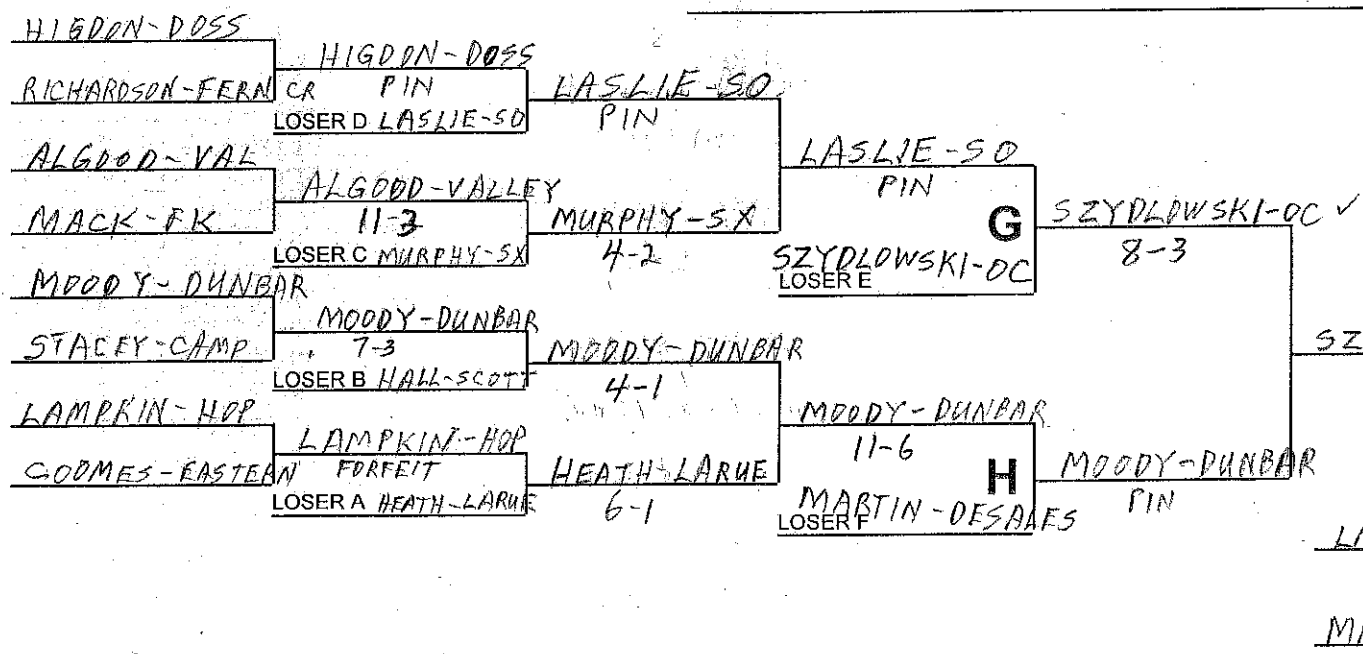 HIGDON-DOSS
RICHARDSON-FERN CR
ALGOOD-VAL
MACK-FK
MOODY-DUNBAR
STACEY-CAMP
LAMPKIN-HOP
GOOMES-EASTERN
HIGDON-DOSS
PIN
LOSER D LASLIE-SO
ALGOOD-VALLEY
11-3
LOSER C MURPHY-SX
MOODY-DUNBAR
7-3
LOSER B HALL-SCOTT
LAMPKIN-HOP
FORFEIT
LOSER A HEATH-LARUE
LASLIE-SO
PIN
MURPHY-SX
4-2
MOODY-DUNBAR
4-1
HEATH-LARUE
6-1
LASLIE-SO
PIN
G
SZYDLOWSKI-OC
LOSER E
MOODY-DUNBAR
11-6
H
MARTIN-DESALES
LOSER F
SZYDLOWSKI-OC ✓
8-3
MOODY-DUNBAR
PIN
SZ
LA
MA